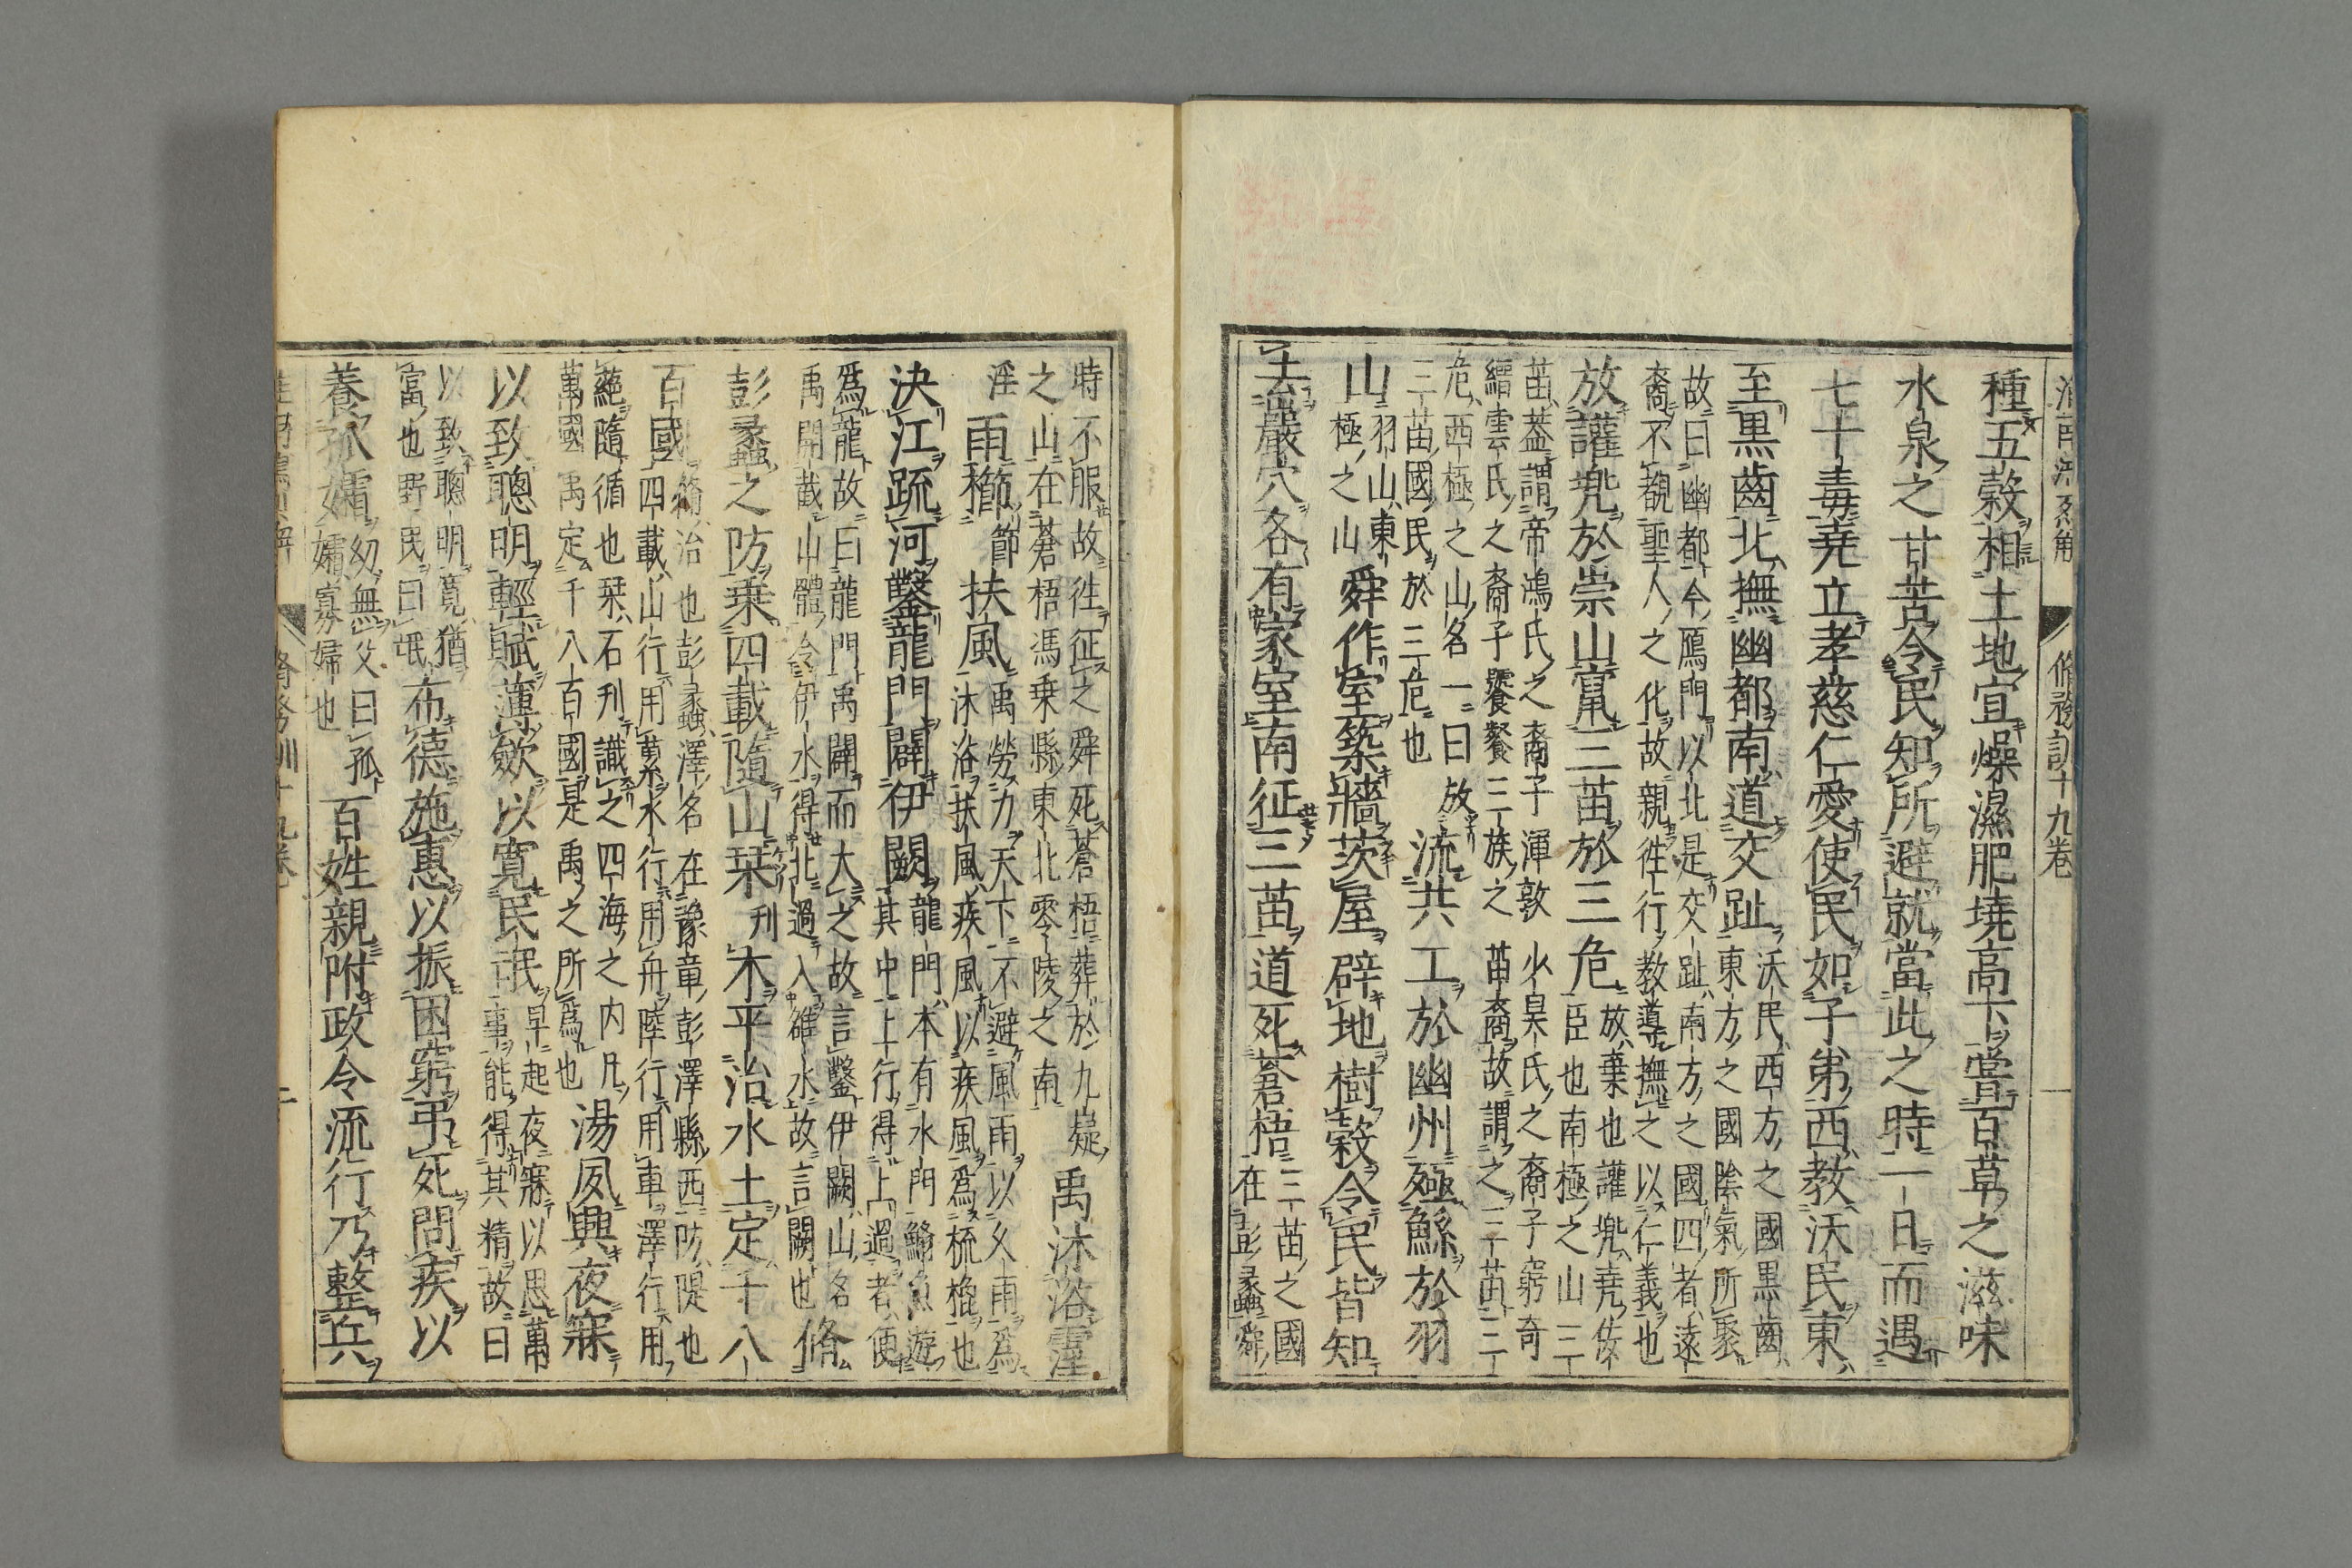 脩務訓十九卷
一
種五穀相土地宜燥濕肥墝高下嘗百草之滋味
水泉之甘苦令民知所避就當此之時一日而遇
七十毒堯立孝慈仁愛使民如子弟西教沃民東
至黑齒北撫幽都南道交趾
沃民西方之國黑齒
東方之國陰氣所聚
故曰幽都今鴈門以北是交趾南方之國四者遠
裔不覩聖人之化故親徃行教導撫之以仁義也
放讙兜於崇山竄三苗於三危
放棄也讙兜堯佐
臣也南極之山三
苗葢謂帝鴻氏之裔子渾敦少昊氏之裔子窮奇
縉雲氏之裔子饕餮三族之苗裔故謂之三苗三
危西極之山名一曰放
三苗國民於三危也
流共工於幽州殛鯀於羽
山
羽山東
極之山
舜作室築牆茨屋辟地樹穀令民皆知
去巖穴各有家室南征三苗道死蒼梧
三苗之國
在彭蠡舜
時不服故徃征之舜死蒼梧葬於九嶷
之山在蒼梧馮乗縣東北零陵之南
禹沐浴霪
淫
雨櫛
節
扶風
禹勞力天下不避風雨以久雨爲
沐浴扶風疾風以疾風爲梳櫛也
決江疏河鑿龍門闢伊闕
龍門本有水門鰷魚遊
其中上行得上過者便
爲龍故曰龍門禹闢而大之故言鑿伊闕山名
禹開截山體令伊水得北過入雒水故言闕也
脩
彭蠡之防乗四載隨山栞
刋
木平治水土定千八
百國
脩治也彭蠡澤名在豫章彭澤縣西防隄也
四載山行用蔂水行用舟陸行用車澤行用
絶隨循也栞石刋識之四海之内凡
萬國禹定千八百國是禹之所爲也
湯夙興夜寐
以致聰明輕賦薄歛以寛民氓
早起夜寐以思萬
事能得其精故曰
以致聰明寛猶
當也野民曰氓
布德施惠以振困窮弔死問疾以
養孤孀
幼無父曰孤
孀寡婦也
百姓親附政令流行乃整兵